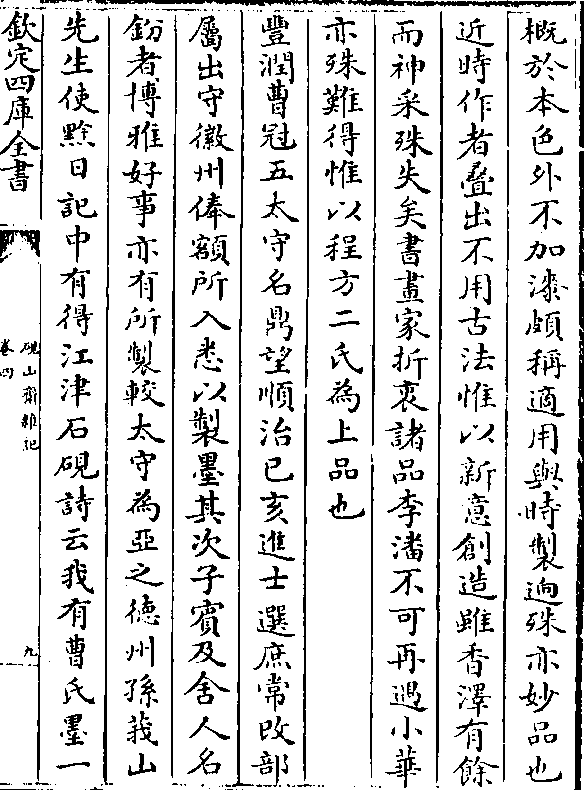 概於本色外不加漆頗稱適用與時製逈殊亦妙品也
近時作者疊出不用古法惟以新意創造雖香澤有餘
而神采殊失矣書畫家折衷諸品李潘不可再遇小華
亦殊難得惟以程方二氏為上品也
豐潤曹冠五太守名鼎望順治已亥進士選庶常改部
屬出守徽州俸額所入悉以製墨其次子賓及舍人名
鈖者博雅好事亦有所製較太守為亞之德州孫莪山
先生使黔日記中有得江津石硯詩云我有曹氏墨一
欽定四庫全書
硯山齋雜記
卷四
九